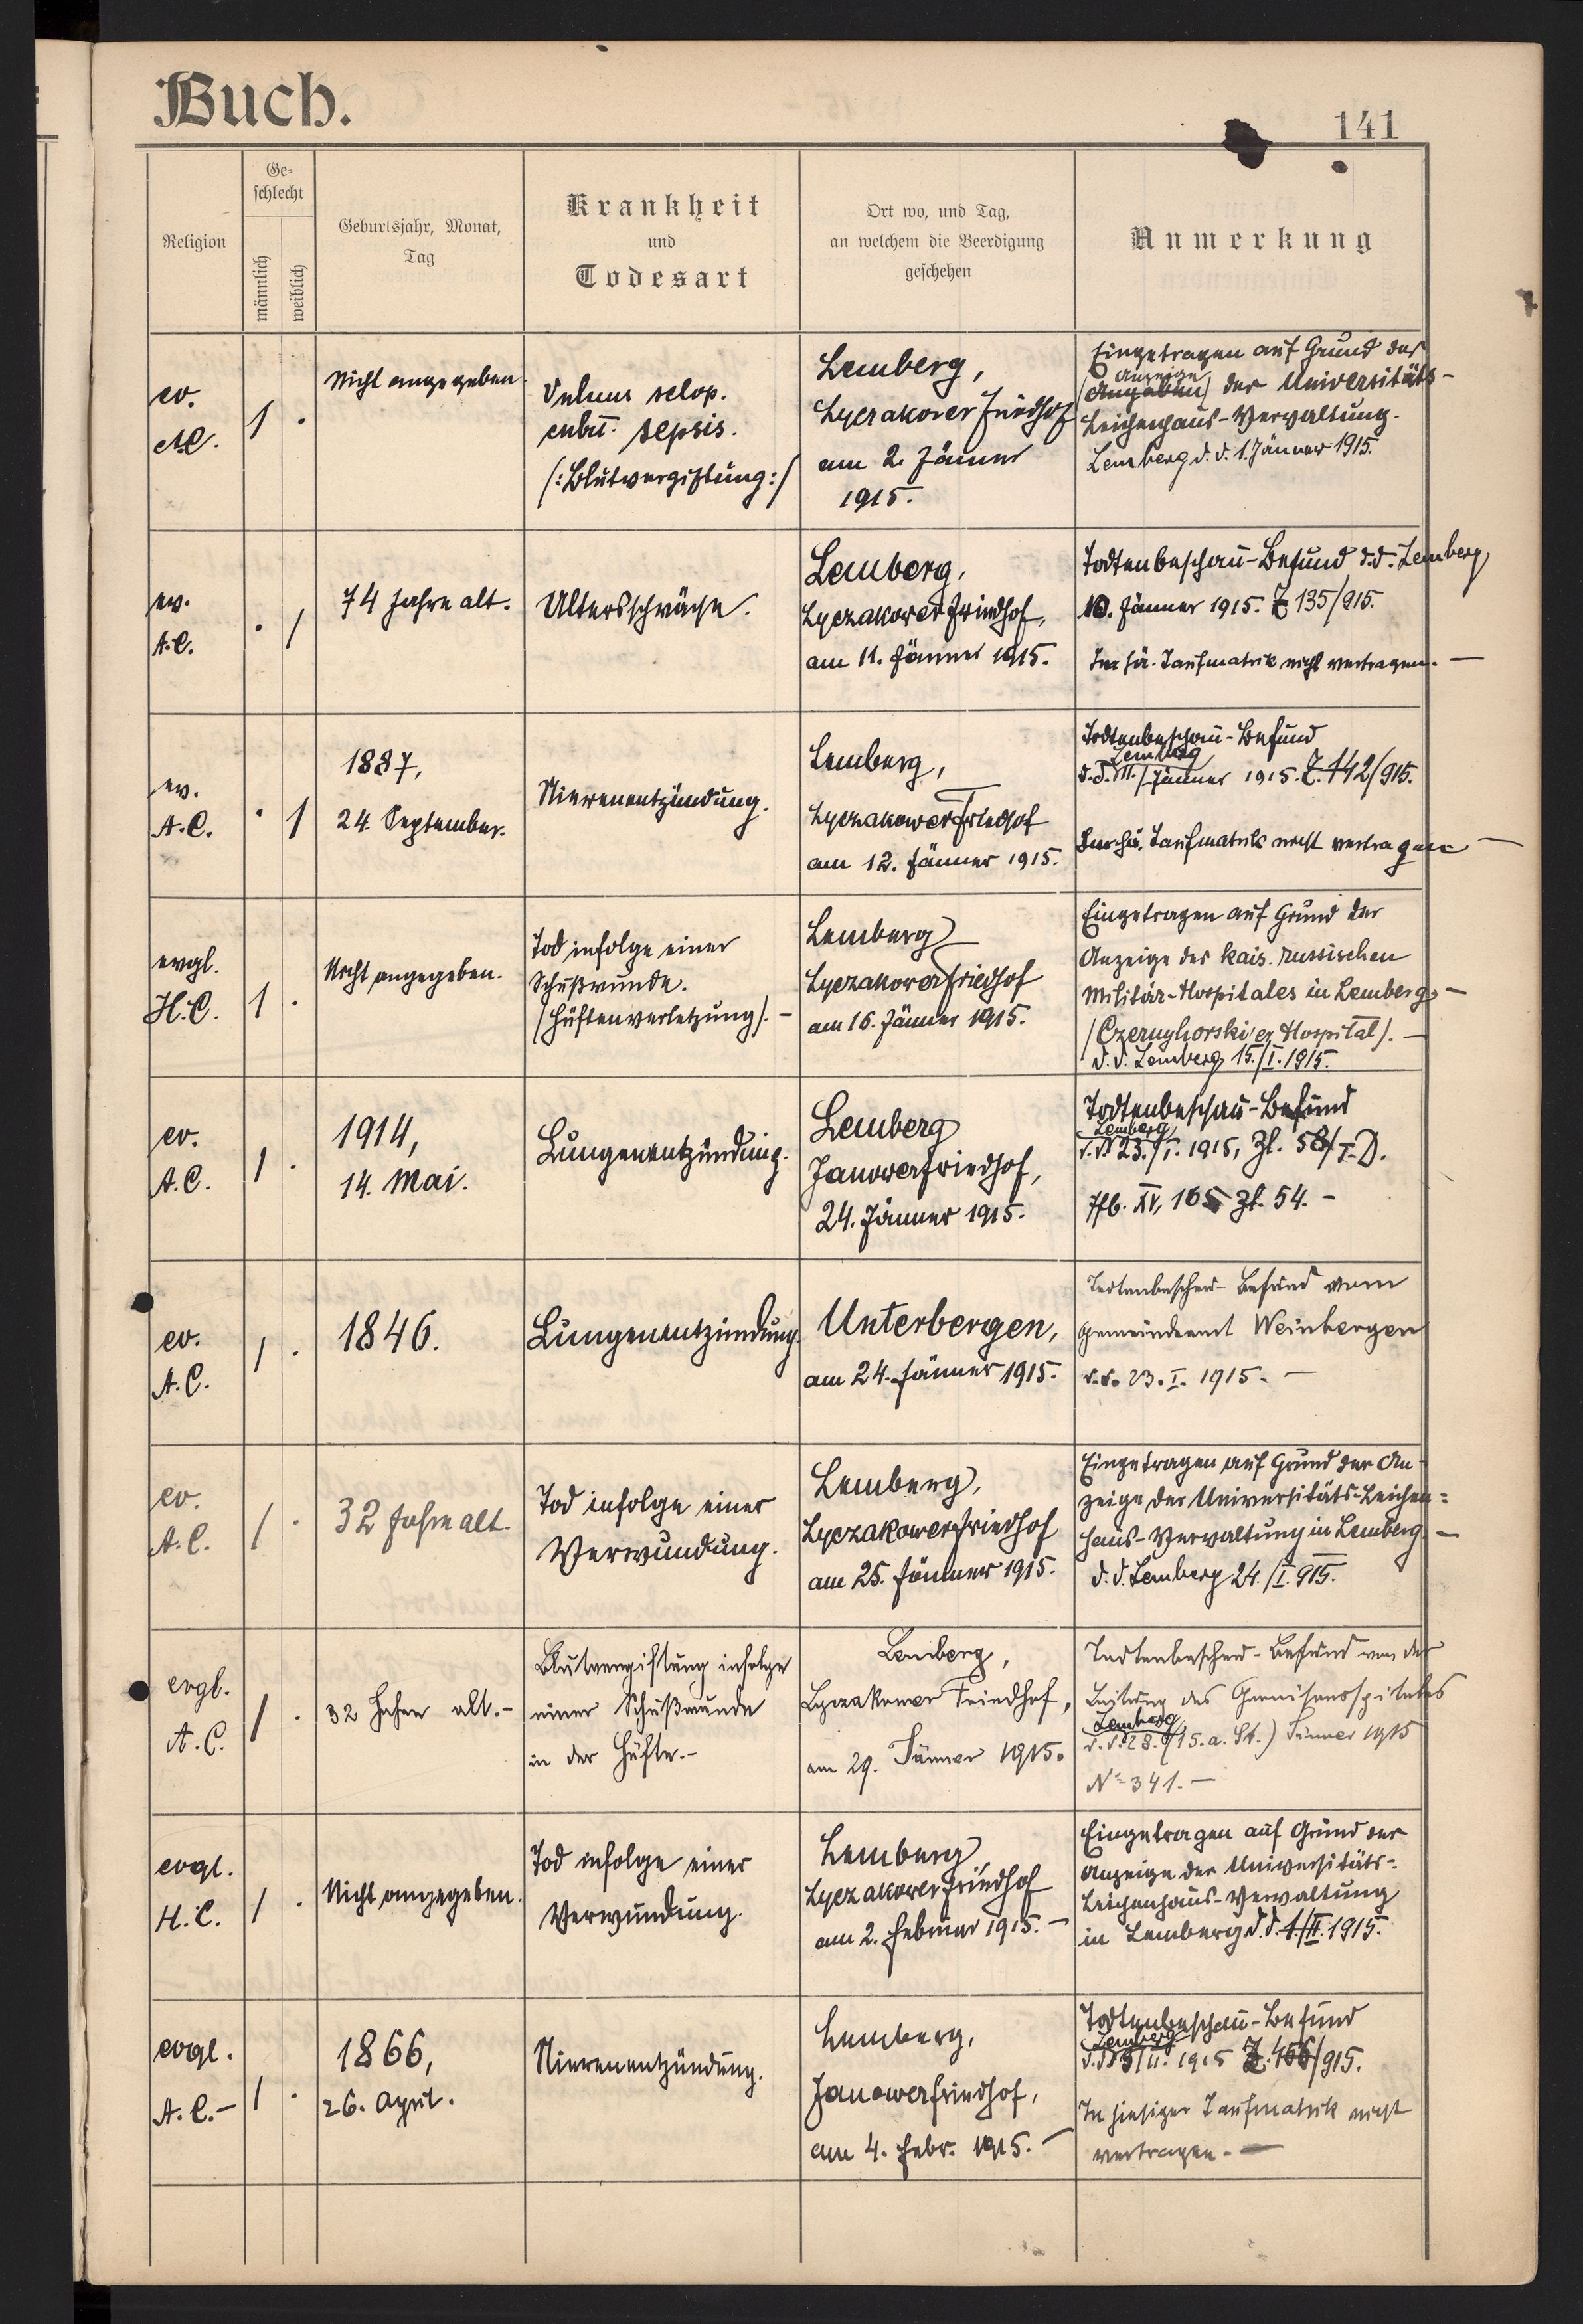 Buch.
141
Religion
Ge-
schlecht
männlich
weiblich
Geburtsjahr, Monat,
Tag
Krankheit
und
Todesart
Ort wo, und Tag,
an welchem die Beerdigung
geschehen
Anmerkung
ev.
AC.
1 .
Nicht angegeben.
Vulnus sclop.
sepsis.
/:Blutvergiftung:/
Lemberg,
Lyczakower Friedhof
am 2. Jänner
1915.
Eingetragen auf Grund der
Anzeige
(Angaben) der Universitäts-
Leichenhaus-Verwaltung.
Lemberg d. d. 1. Jänner 1915.
ev.
A.C.
. 1
74 Jahre alt.
Altersschwäche.
Lemberg,
Lyczakower Friedhof,
am 11. Jänner 1915.
Todtenbeschau-Befund d.d. Lemberg
10. Jänner 1915. Z 135/915.
In hir. Taufmatrik nicht vertragen. —
ev.
A.C.
. 1
1887,
24. September.
Nierenentzündung.
Lemberg,
Lyczakower Friedhof
am 12. Jänner 1915.
Todtenbeschau-Befund
Lemberg
d.d. 11./Jänner 1915. Z. 142/915.
Taufmatrik nicht vertragen —
evgl.
H.C.
1 .
Nicht angegeben.
Tod infolge einer
Schußwunde.
/Hüftenverletzung/. —
Lemberg
Lyczakower Friedhof
am 16. Jänner 1915.
Eingetragen auf Grund der
Anzeige des kais. russischen
Militär-Hospitales in Lemberg. —
/Czernyhorski'er Hospital/. —
d. d. Lemberg 15./I. 1915.
ev.
A.C.
1 .
1914,
14. Mai.
Lungenentzündung.
Lemberg
Janower Friedhof,
24. Jänner 1915.
Todtenbeschau-Befund
Lemberg
d.d. 23./I. 1915, Zl. 58/I.D.
Tfb. XV, 165 Zl. 54. -
ev.
A.C.
1 .
1846.
Lungenentzündung.
Unterbergen,
am 24. Jänner 1915.
Todtenbeschau-Befund vom
Gemeindeamt Weinbergen
d.d. 23. I. 1915. —
ev.
A.C.
1 .
32 Jahre alt.
Tod infolge einer
Verwundung.
Lemberg,
Lyczakower Friedhof
am 25. Jänner 1915.
Eingetragen auf Grund der An-
zeige der Universitäts-Leichen=
haus-Verwaltung in Lemberg. —
d. d. Lemberg 24./I. 915.
evgl.
A.C.
1 .
32 Jahre alt. -
Blutvergiftung infolge
einer Schußwunde
in der Hüfte. -
Lemberg,
Lyczakower Friedhof,
am 29. Jänner 1915.
Todtenbeschau-Befund von der
Leitung des Garnisonsspitales
Lemberg
d.d. 28. (15. a. St.) Jänner 1915
No 341. —
evgl.
H.C.
1 .
Nicht angegeben.
Tod infolge einer
Verwundung.
Lemberg,
Lyczakower Friedhof
am 2. Februar 1915. —
Eingetragen auf Grund der
Anzeige der Universitäts-
Leichenhaus-Verwaltung
in Lemberg d. d. 1./II. 1915.
evgl.
A.C. -
1 .
1866,
26. April.
Nierenentzündung.
Lemberg,
Janower Friedhof,
am 4. Febr. 1915. —
Todtenbeschau-Befund
Lemberg
d.d. 3/II. 1915 Z. 466/915.
In hiesiger Taufmatrik nicht
vertragen. —